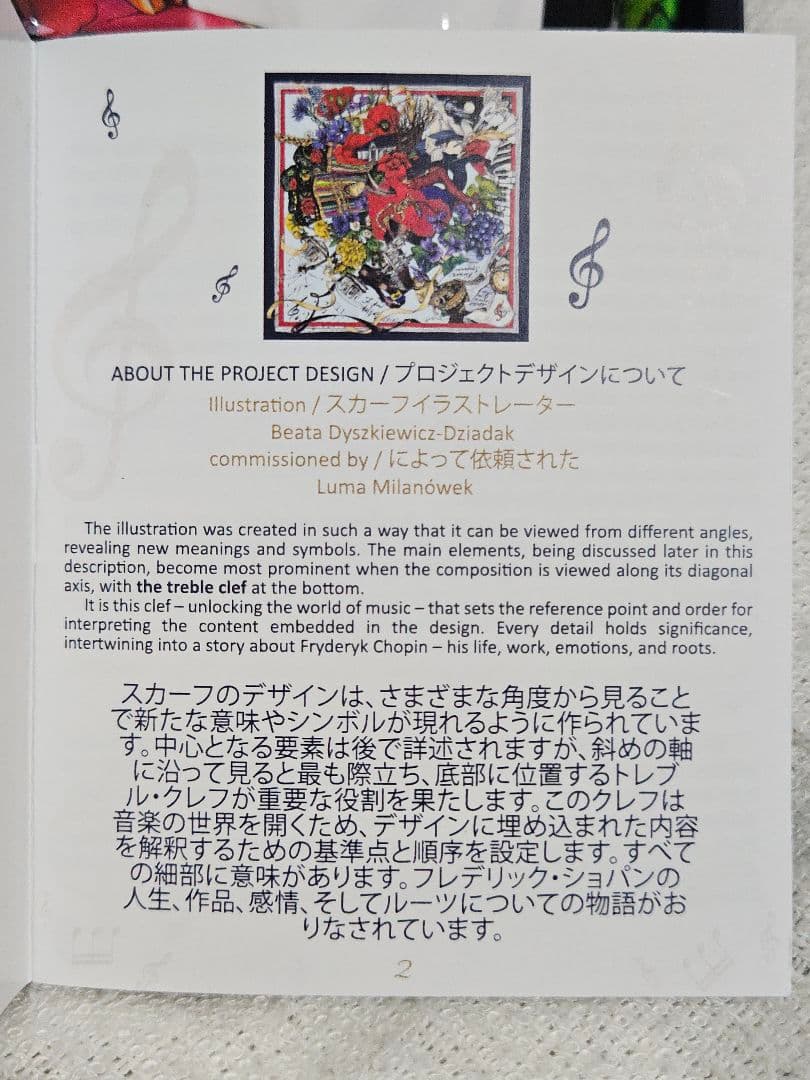 ABOUT THE PROJECT DESIGN / プロジェクトデザインについて
Illustration / スカーフイラストレーター
Beata Dyszkiewicz-Dziadak
commissioned by / によって依頼された
Luma Milanówek
The illustration was created in such a way that it can be viewed from different angles,
revealing new meanings and symbols. The main elements, being discussed later in this
description, become most prominent when the composition is viewed along its diagonal
axis, with the treble clef at the bottom.
It is this clef – unlocking the world of music – that sets the reference point and order for
interpreting the content embedded in the design. Every detail holds significance,
intertwining into a story about Fryderyk Chopin – his life, work, emotions, and roots.
スカーフのデザインは、さまざまな角度から見ること
で新たな意味やシンボルが現れるように作られていま
す。中心となる要素は後で詳述されますが、斜めの軸
に沿って見ると最も際立ち、底部に位置するトレブ
ル・クレフが重要な役割を果たします。このクレフは
音楽の世界を開くため、デザインに埋め込まれた内容
を解釈するための基準点と順序を設定します。すべて
の細部に意味があります。フレデリック・ショパンの
人生、作品、感情、そしてルーツについての物語がお
りなされています。
2